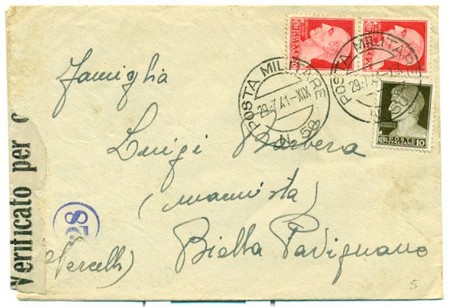 POSTA MILITARE
29·7·41-XIX
N. 58
POSTA MILITARE
29·7
famiglia
Luigi Barbera
(macnista)
Biella Pavignano
(Vercelli)
Verificato per c
28
10
5